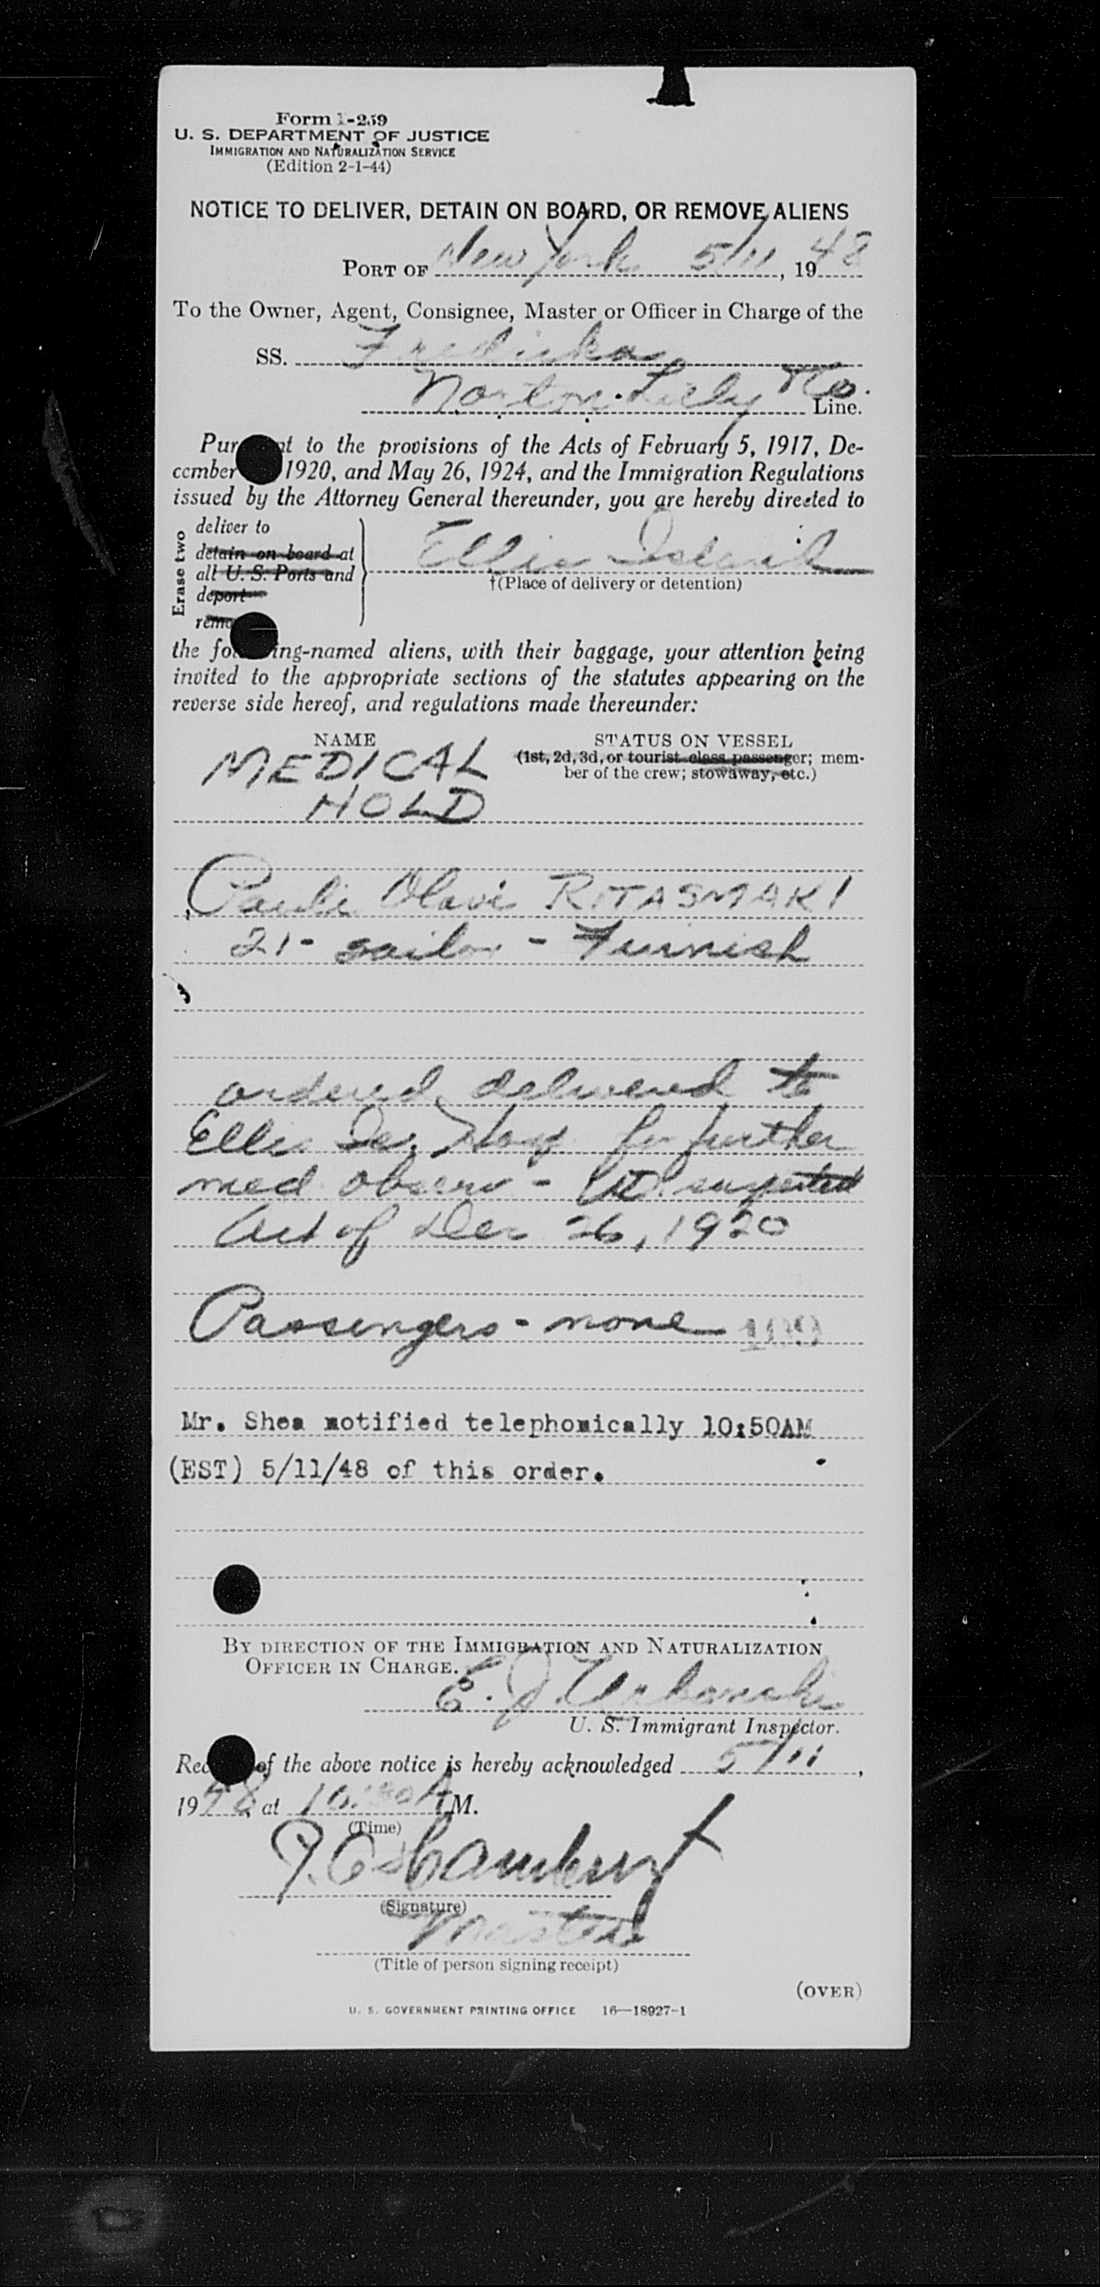 Form I-259
U. S. DEPARTMENT OF JUSTICE
IMMIGRATION AND NATURALIZATION SERVICE
(Edition 2-1-44)
NOTICE TO DELIVER, DETAIN ON BOARD, OR REMOVE ALIENS
PORT OF New York 5/11, 1948
To the Owner, Agent, Consignee, Master or Officer in Charge of the
SS. Fredicka
Norton Lilly & Co. Line.
Pursuant to the provisions of the Acts of February 5, 1917, De-
cember 1920, and May 26, 1924, and the Immigration Regulations
issued by the Attorney General thereunder, you are hereby directed to
Erase two
deliver to
detain on board at
all U. S. Ports and
deport
remove
Ellis Island
†(Place of delivery or detention)
the following-named aliens, with their baggage, your attention being
invited to the appropriate sections of the statutes appearing on the
reverse side hereof, and regulations made thereunder:
NAME STATUS ON VESSEL
(1st, 2d, 3d, or tourist class passenger; mem-
ber of the crew; stowaway, etc.)
MEDICAL
HOLD
Pauli Olavi RITASMAKI
21- sailor - Finnish
ordered delivered to
Ellis Is. Hosp for further
med observ - suspected
Act of Dec 26, 1920
Passengers - none
Mr. Shea notified telephonically 10:50AM
(EST) 5/11/48 of this order.
BY DIRECTION OF THE IMMIGRATION AND NATURALIZATION
OFFICER IN CHARGE.
E. J. Urbanski
U. S. Immigrant Inspector.
Receipt of the above notice is hereby acknowledged 5/11,
1948 at 10:30 A.M.
(Time)
(Signature)
Master
(Title of person signing receipt)
(OVER)
U. S. GOVERNMENT PRINTING OFFICE 16—18927-1